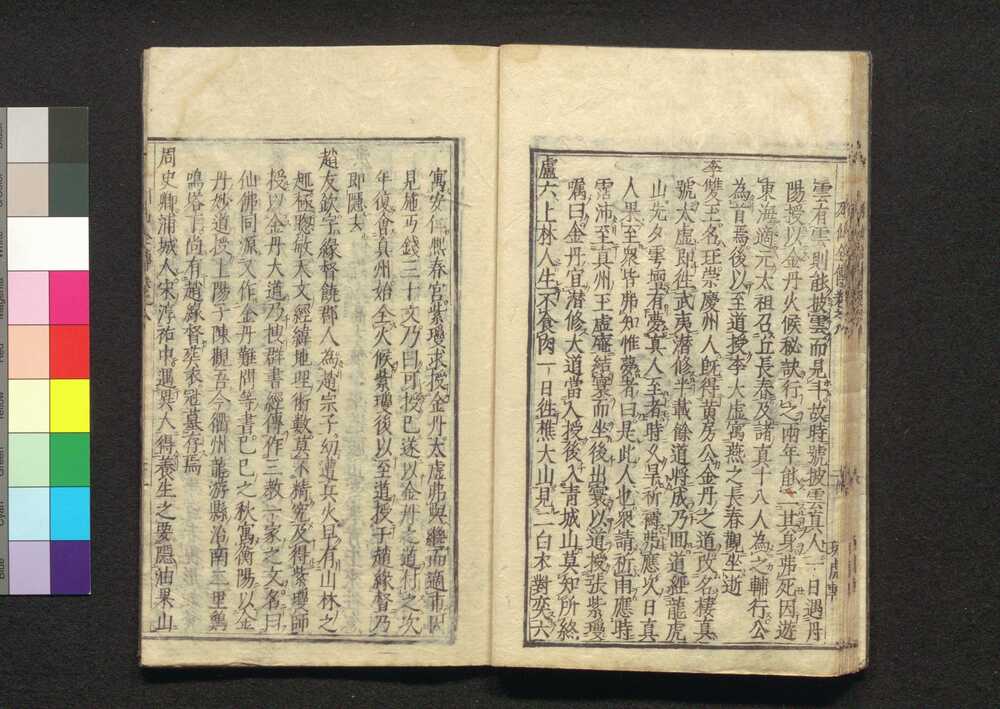 雲有雲則能披雲而見中故時號披雲真人一日遇丹
陽授以金丹火候秘訣行之兩年能一其身弗死因遊
東海適元太祖召丘長春及諸真十八人為之輔行公
為首焉後以至道授李大虛寓燕之長春觀坐逝
李雙玉名珏崇慶州人既得黃房公金丹之道改名棲真
號太虛即往武夷潛修半載餘道將成乃回道經龍虎
山先夕雲壇有夢真人至者時久旱祈禱弗應次日真
人果至眾皆弗知惟夢者曰是此人也眾請祈雨應時
霑沛至真州玉虛庵結寰而坐後出寰以道授張紫瓊
囑曰金丹宜潛修大道當入授後入青城山莫知所終
盧六上林人生不食肉一日徃樵大山見二白衣對奕六
寓安仁熙春宮紫瓊求授金丹太虛弗與繼而適市因
見施丐錢三十文乃曰可授已遂以金丹之道付之次
年復會真州始全火候紫瓊後以至道授于趙緣督乃
即隱去
趙友欽字緣督饒郡人為趙宗子幼遭兵火早有山林之
趣極聰敏天文經緯地理術數莫不精究及得紫瓊師
授以金丹大道乃搜群書經傳作三教一家之文名曰
仙佛同源又作金丹難問等書己巳之秋寓衡陽以金
丹妙道授上陽子陳觀吾今衢州龍游縣治南三里鷄
鳴塔下尚有趙緣督葬衣冠墓存焉
周史卿浦城人宋淳祐中遇異人得養生之要隱油果山